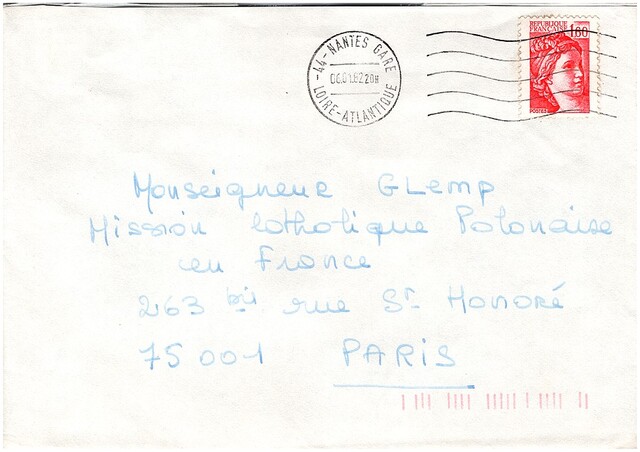 RÉPUBLIQUE
FRANÇAISE 1,60
POSTES
44 - NANTES GARE
06.01.82 20H
LOIRE-ATLANTIQUE
Monseigneur GLemp
Mission Catholique Polonaise
en France
263 bis rue St Honoré
75 001 PARIS